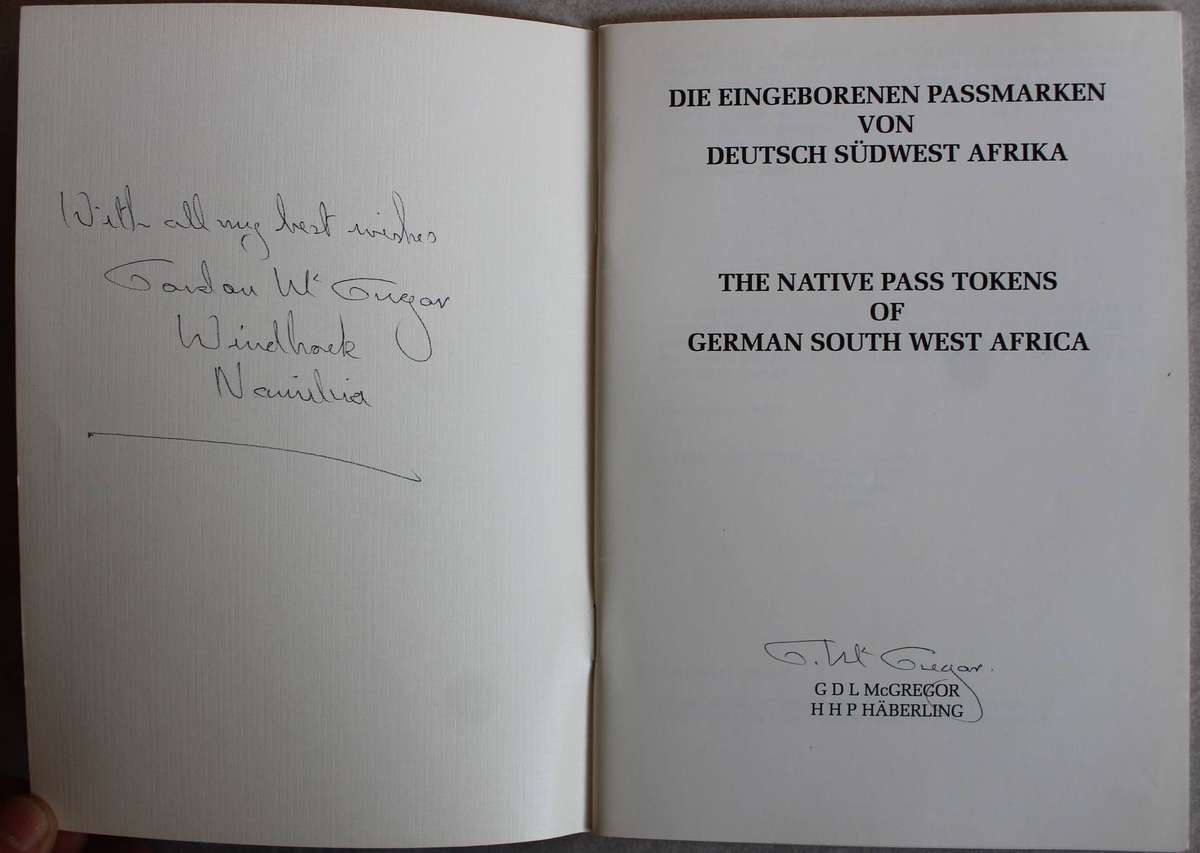 With all my best wishes
Gordon Mc Gregor
Windhoek
Namibia
DIE EINGEBORENEN PASSMARKEN
VON
DEUTSCH SÜDWEST AFRIKA
THE NATIVE PASS TOKENS
OF
GERMAN SOUTH WEST AFRICA
G. Mc Gregor.
G D L McGREGOR
H H P HÄBERLING